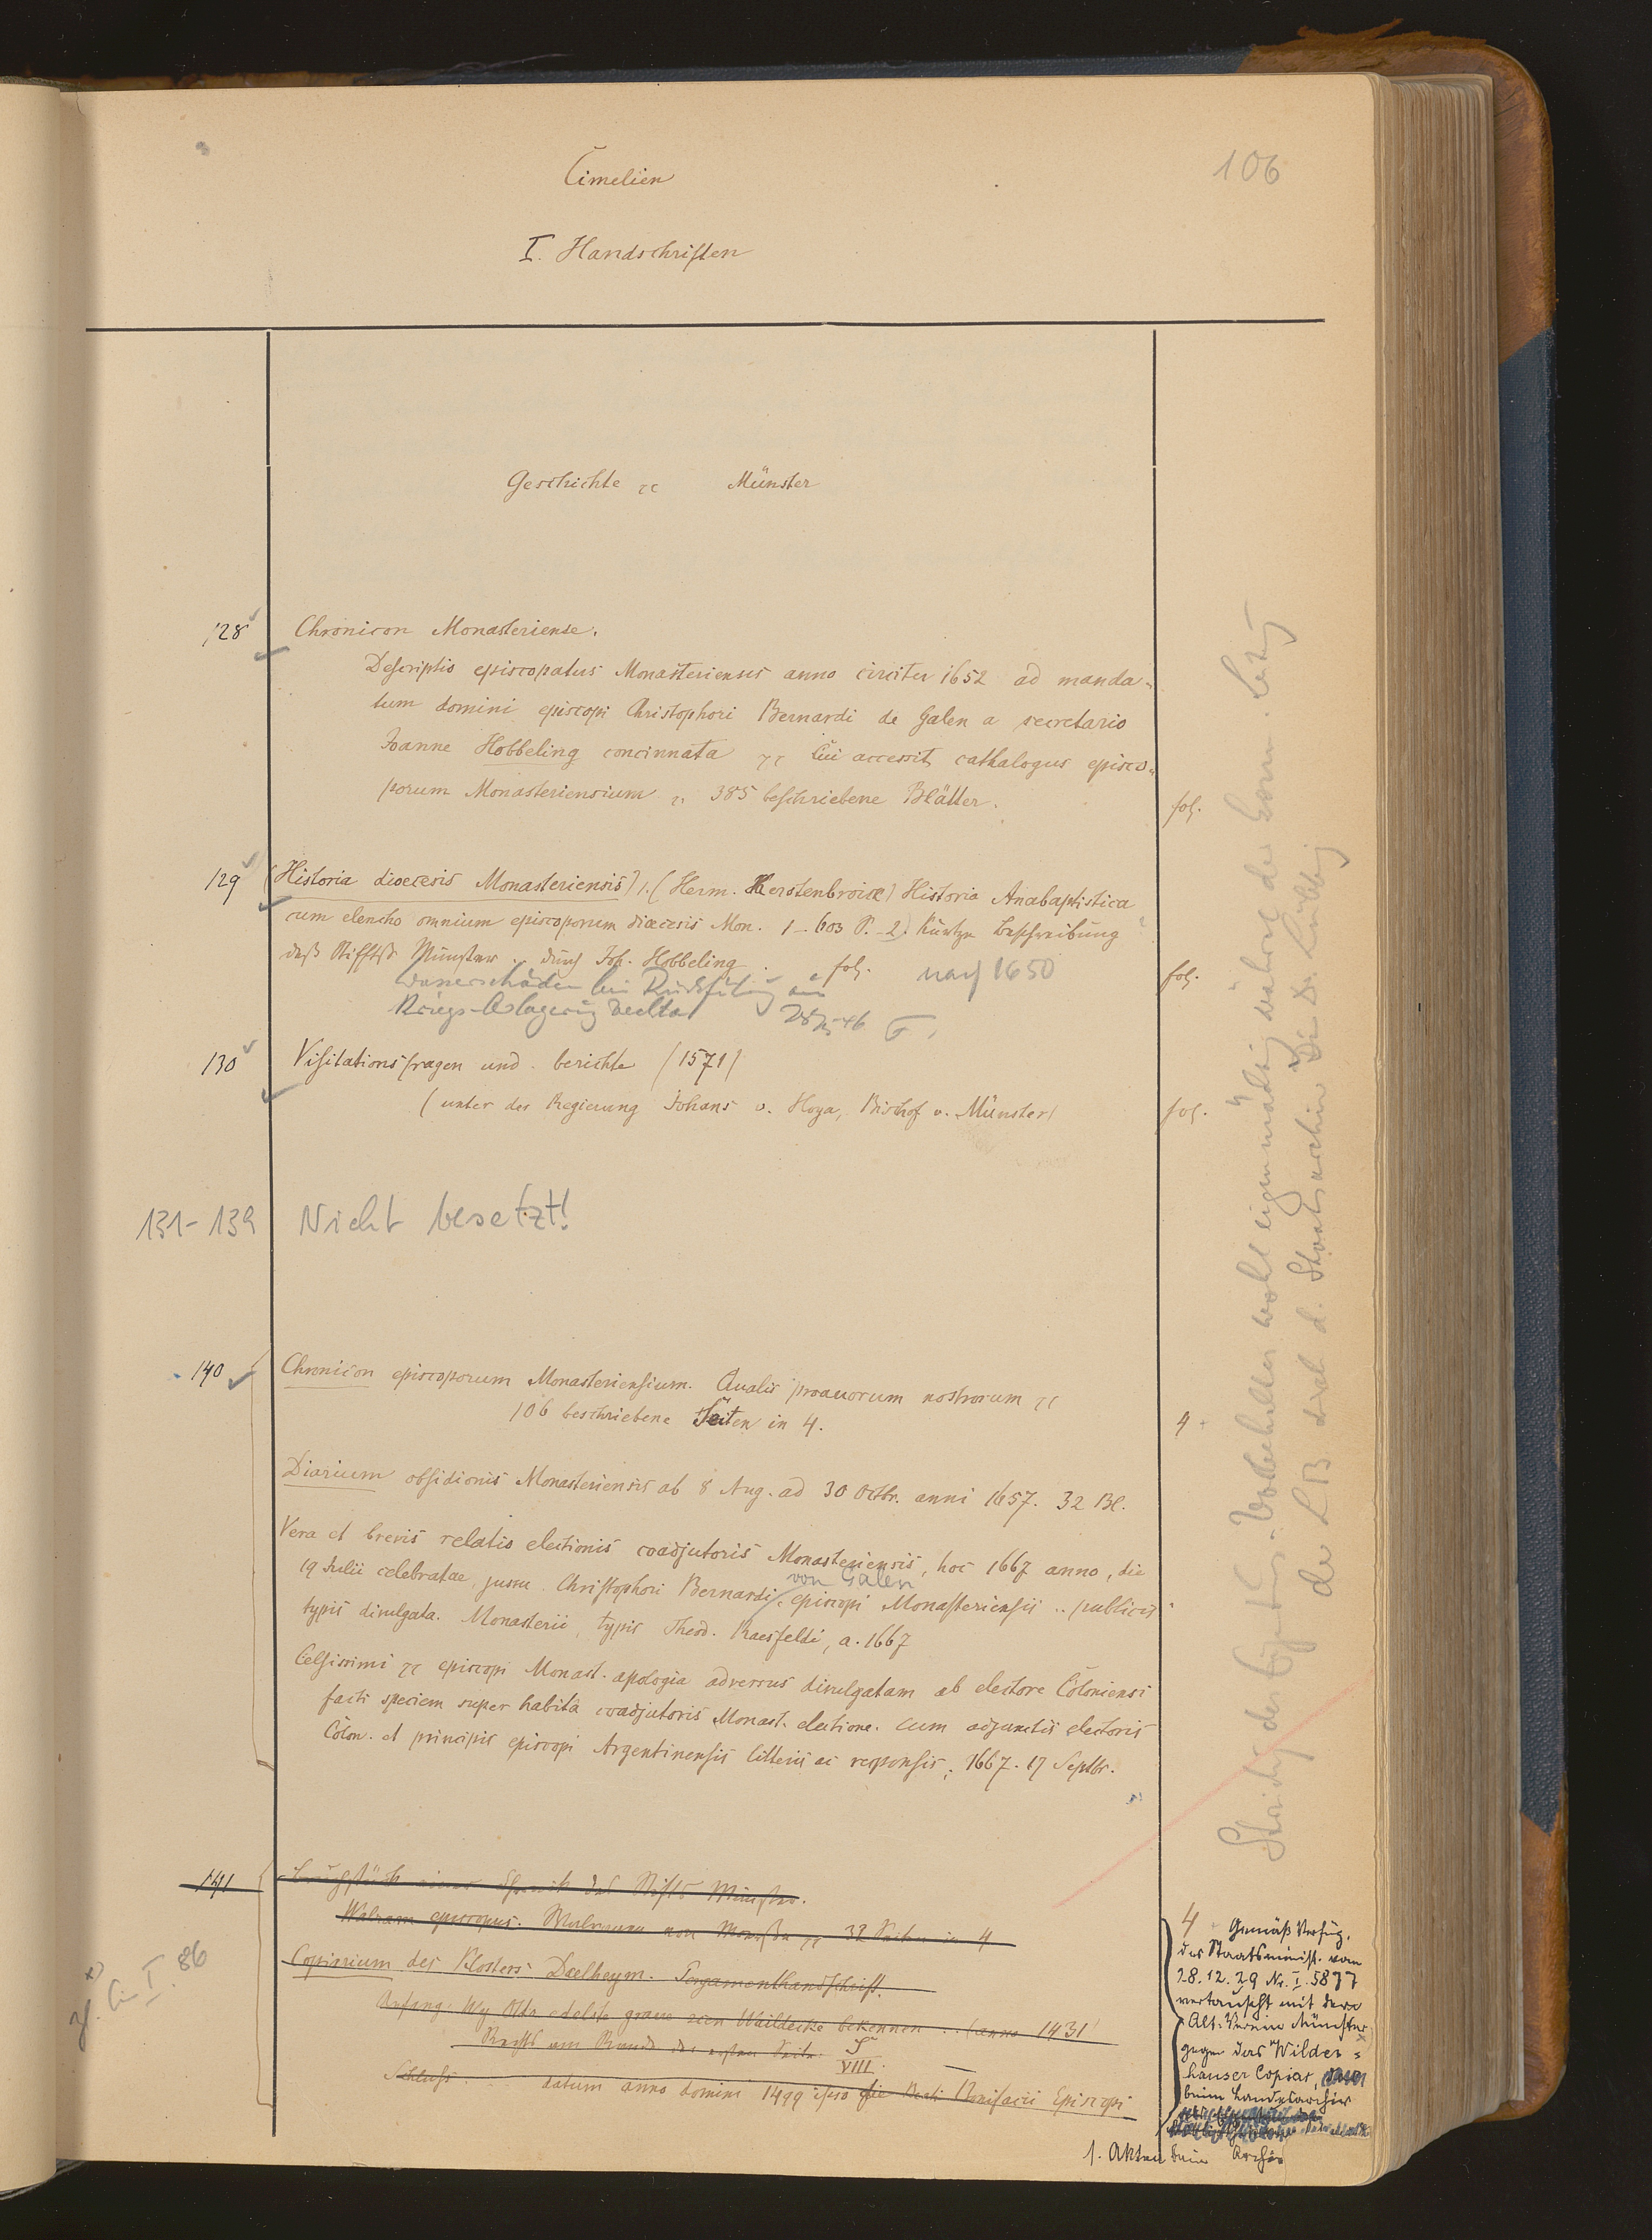 106
Cimelien
I. Handschriften
Geschichte ꝛc Münster
128 Chronicon Monasteriense.
Descriptio episcopatus Monasteriensis anno circiter 1652 ad manda-
tum domini episcopi Christophori Bernardi de Galen a secretario
Joanne Hobbeling concinnata ꝛc Cui accessit cathalogus episco-
porum Monasteriensium 385 beschriebene Blätter.
fol.
129 (Historia dioecesis Monasteriensis) 1. (Herm. Kerstenbroick) Historia Anabaptistica
cum elencho omnium episcoporum dioecesis Mon. 1-603 P. - 2. Kurtze Beschreibung
deß Stiffts Münster .. durch Joh. Hobbeling fol. nach 1650
fol.
Wasserschäden bei Rückführung aus
Kriegs-Aslagerung Vechta
130 Visitationsfragen und -berichte (1571)
(unter der Regierung Johans v. Hoya, Bischof v. Münster)
fol.
131-139 Nicht besetzt!
140 Chronicon episcoporum Monasteriensium. Qualis proavorum nostrorum ꝛc
106 beschriebene Seiten in 4.
4
Diarium obsidionis Monasteriensis ab 8 Aug. ad 30 Octbr. anni 1657. 32 Bl.
Vera et brevis relatio electionis coadjutoris Monasteriensis, hoc 1667 anno, die
19 Julii celebratae, jussu Christophori Bernardi von Galen episcopi Monasteriensis .. publicis
typis divulgata. Monasterii, typis Theod. Raesfeldi, a. 1667
Celsissimi ꝛc episcopi Monast. apologia adversus divulgatam ab electore Coloniensi
facti speciem super habita coadjutoris Monast. electione. cum adjunctis electoris
Colon. et principis episcopi Argentinensis litteris ac responsis; 1667. 17 Septbr.
141 Bruchstück einer Chronik des Stifts Münster.
Walram episcopus. Walram von ꝛc 32 Seiten in 4
Copiarium des Klosters Daelheym. Pergamenthandschrift.
Anfang: Wy Otto edelste grave Waldecke bekennen .. (anno 1431)
Rechts am Rande der ersten Seite: S
VIII.
Schluss: datum anno domini 1499 ipso die beati Bonifacii Episcopi
4 Gemäß Verfüg.
des Staatsminist. vom
28.12.29 Nr. I. 5877
vertauscht mit dem
Alt. Verein Münster
gegen das Wildes-
hauser Copiar,
beim Landesarchiv
1. Akten beim Archiv
I. 86
Ständiger Eigentums-Vorbehalt wohl eigenmächtig während der
der LB durch d. Staatsarchiv Dir. Dr. Lübbing